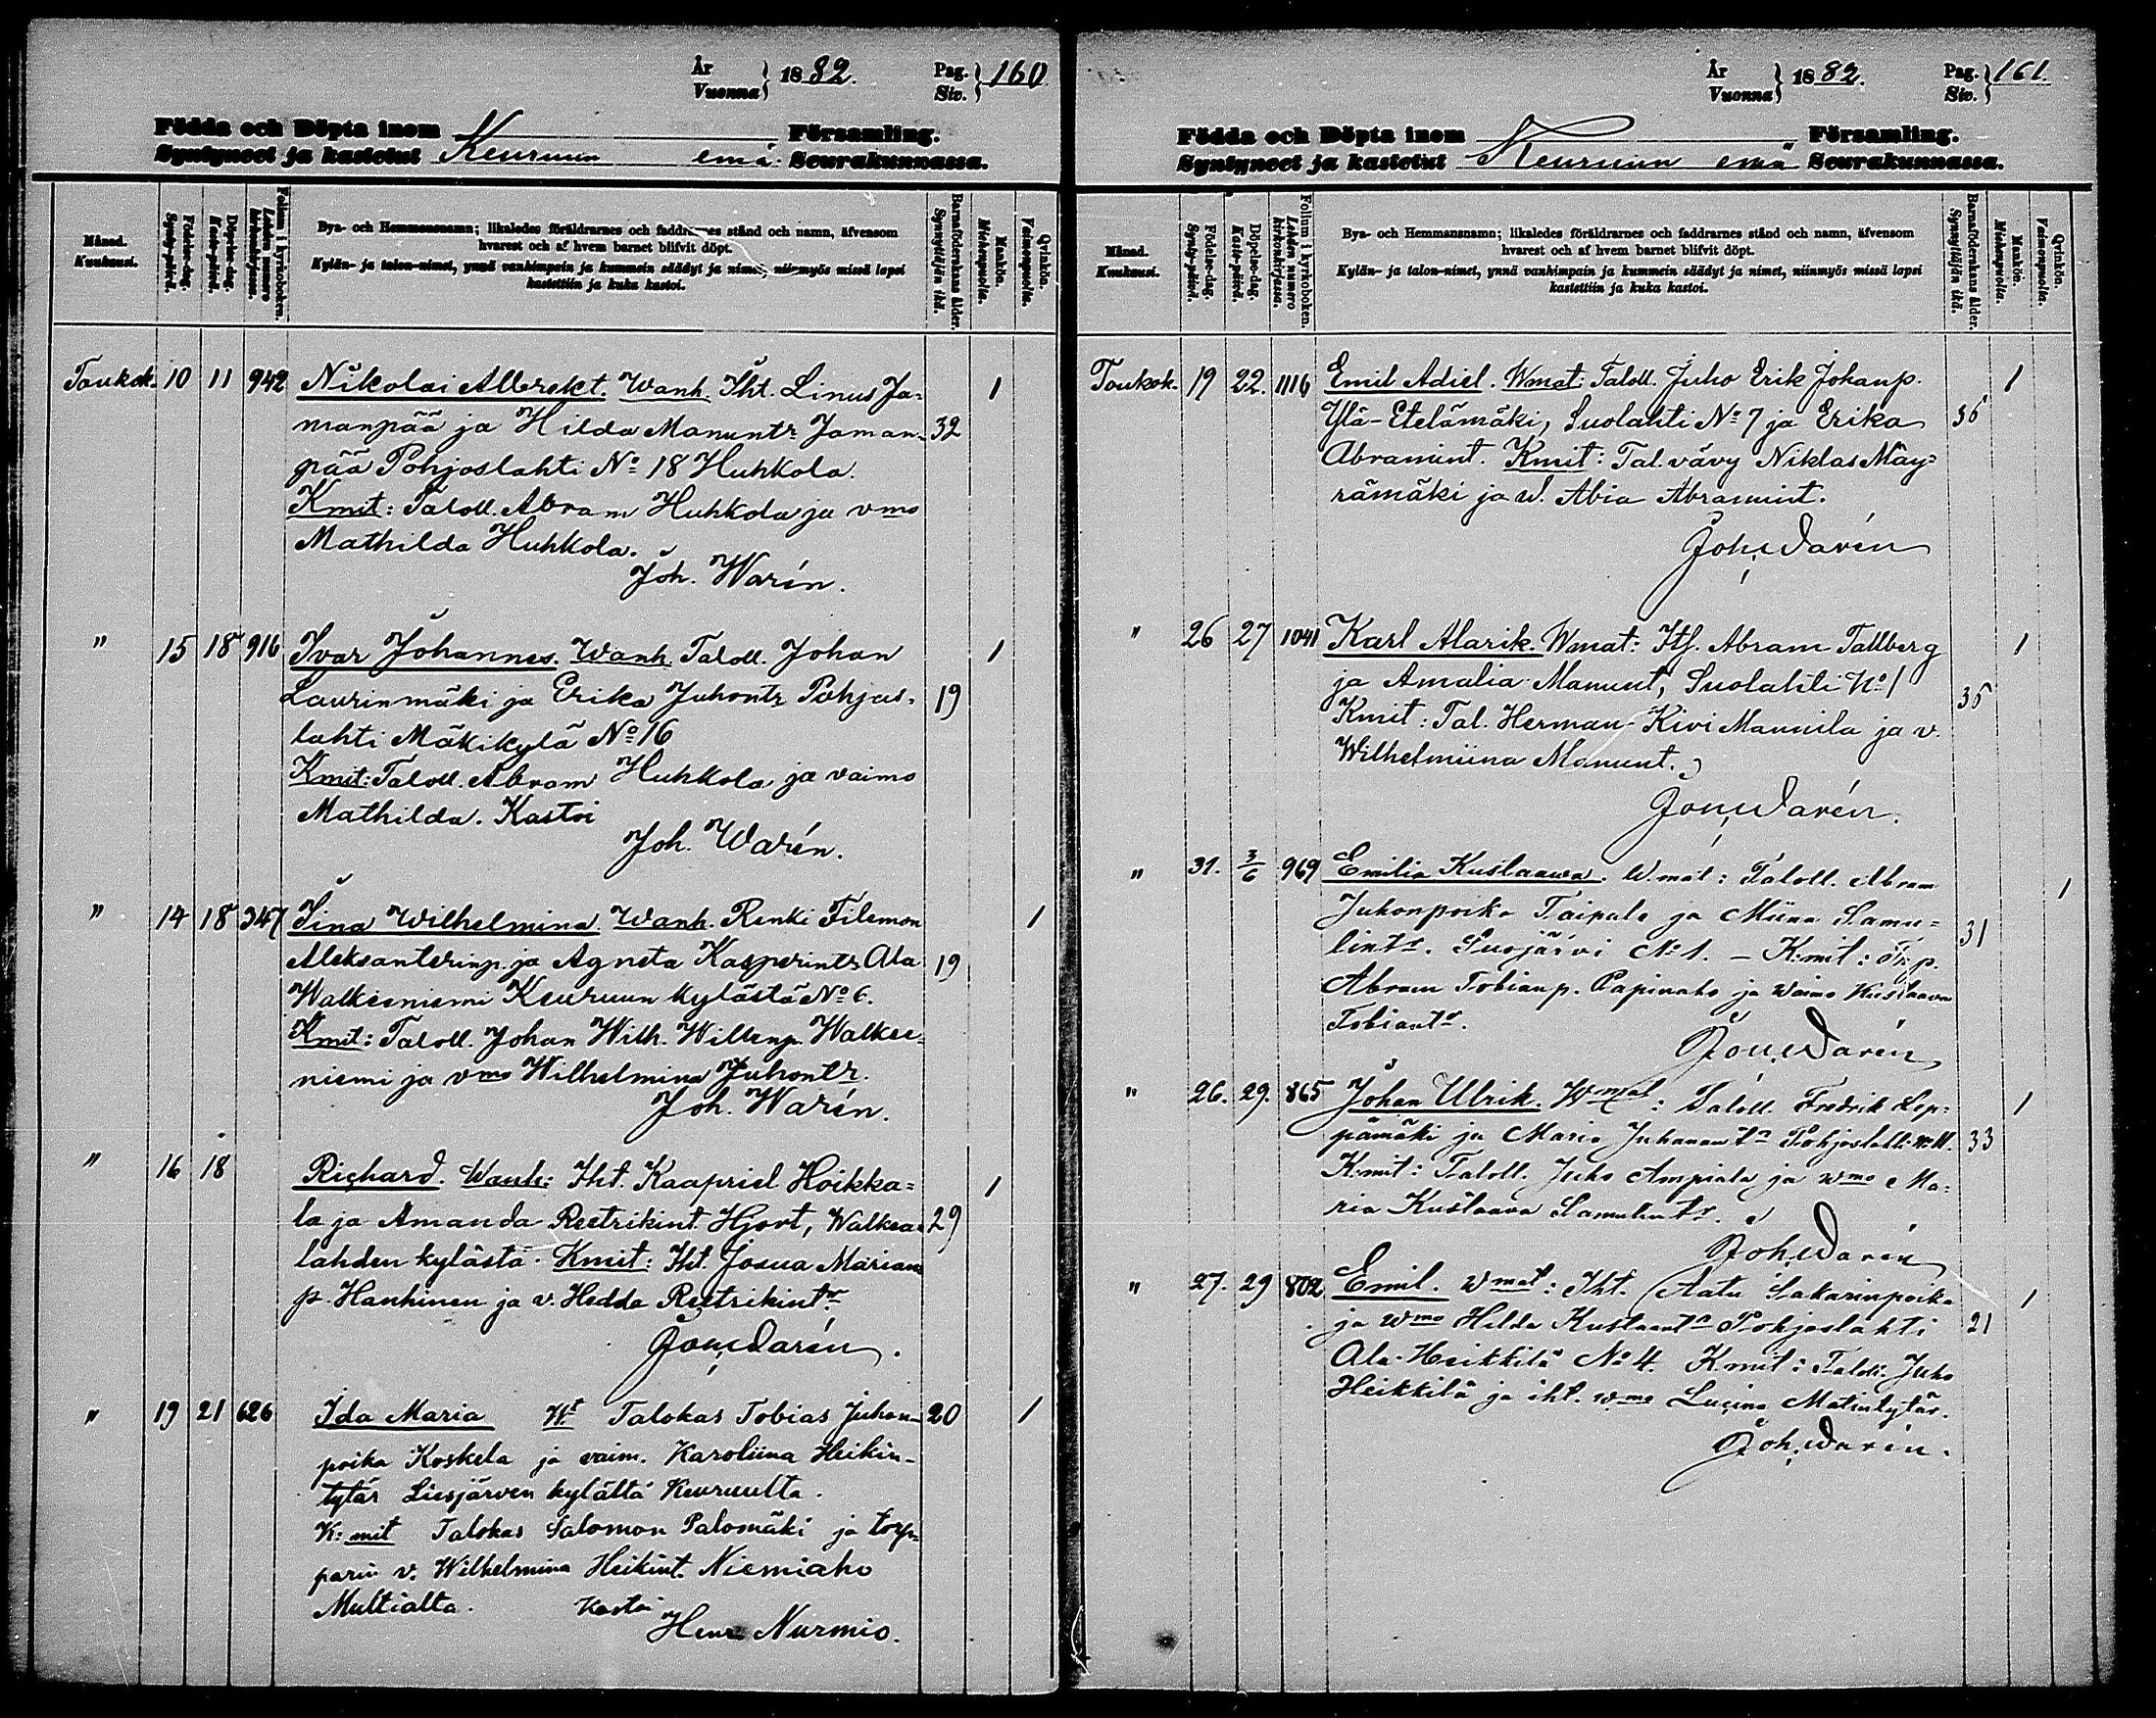 År
Vuonna } 1882. Pag.
Siv. } 160
Födda och Döpta inom Församling.
Syntyneet ja kastetut Keuruun emä Seurakunnassa.
Månad.
Kuukausi.
Födelse-dag.
Synty-päivä.
Döpelse-dag.
Kaste-päivä.
Folium i kyrkoboken.
Lehden numero
kirkonkirjassa.
Bya- och Hemmansnamn; likaledes föräldrarnes och faddrarnes stånd och namn, äfvensom
hvarest och af hvem barnet blifvit döpt.
Kylän- ja talon-nimet, ynnä vanhimpain ja kummein säädyt ja nimet, niinmyös missä lapsi
kastettiin ja kuka kastoi.
Barnaföderskans ålder.
Synnyttäjän ikä.
Mankön.
Miehenpuolia.
Qvinkön.
Vaimonpuolia.
Toukok. 10 11 942 Nikolai Albrekt. Wanh. Iht. Linus Ja- 1
manpää ja Hilda Manuntr Jaman- 32
pää Pohjoslahti No 18 Huhkola.
Kmit: Taloll. Abram Huhkola ja vmo
Mathilda Huhkola.
Joh. Warén.
" 15 18 916 Ivar Johannes. Wanh. Taloll. Johan 1
Laurinmäki ja Erika Juhontr Pohjas- 19
lahti Mäkikylä No 16
Kmit: Taloll. Abram Huhkola ja vaimo
Mathilda. Kastoi
Joh. Warén.
" 14 18 347 Tina Wilhelmina. Wanh. Renki Filemon 1
Aleksanterinp. ja Agneta Kasperintr Ala 19
Walkeeniemi Keuruun kylästä No 6.
Kmit: Taloll. Johan Wilh. Willenp. Walkee-
niemi ja vmo Wilhelmina Juhontr.
Joh. Warén.
" 16 18 Richard. Wanh: Iht. Kaapriel Hoikka= 1
la ja Amanda Reetrikint. Hjort, Walkea= 29
lahden kylästä. Kmit: Iht. Josua Marian
p. Hanhinen ja v. Hedda Reetrikintr
Joh. Warén.
" 19 21 626 Ida Maria Wt Talokas Tobias Juhon- 20 1
poika Koskela ja vaim. Karoliina Heikin-
tytär Liesjärven kylältä Keuruulta.
K: mit Talokas Salomon Palomäki ja torp-
parin v. Wilhelmina Heikint. Niemiaho
Multialta. Kastoi
Henr Nurmio.
År
Vuonna } 1882. Pag.
Siv. } 161.
Födda och Döpta inom Församling.
Syntyneet ja kastetut Keuruun emä Seurakunnassa.
Månad.
Kuukausi.
Födelse-dag.
Synty-päivä.
Döpelse-dag.
Kaste-päivä.
Folium i kyrkoboken.
Lehden numero
kirkonkirjassa.
Bya- och Hemmansnamn; likaledes föräldrarnes och faddrarnes stånd och namn, äfvensom
hvarest och af hvem barnet blifvit döpt.
Kylän- ja talon-nimet, ynnä vanhimpain ja kummein säädyt ja nimet, niinmyös missä lapsi
kastettiin ja kuka kastoi.
Barnaföderskans ålder.
Synnyttäjän ikä.
Mankön.
Miehenpuolia.
Qvinkön.
Vaimonpuolia.
Toukok. 19 22. 1116 Emil Adiel. Wmat: Taloll. Juho Erik Johanp. 1
Ylä-Etelämäki, Suolahti No 7 ja Erika 36
Abramint. Kmit: Tal. vävy Niklas Mäy=
rämäki ja w. Abia Abramint.
Joh. Warén
" 26 27 1041 Karl Alarik. Wmat: Itl. Abram Tallberg 1
ja Amalia Manunt, Suolahti No 1 35
Kmit: Tal. Herman Kivi Mannila ja v.
Wilhelmiina Manunt.
Joh. Warén.
" 31. 3/6 969 Emilia Kustaawa. W.mat: Taloll. Abram 1
Juhonpoika Taipale ja Miina Samu=
lintr. Suojärvi No 1. – K:mit: Trp. 31
Abram Tobianp. Papinaho ja waimo Kustaava
Tobiantr.
Joh. Warén
" 26. 29. 865 Johan Ulrik. Wmat: Taloll. Fredrik Lep= 1
pämäki ja Maria Juhanantr Pohjoslahti 33
K:mit: Taloll. Juho Ampiala ja wmo Ma=
ria Kustaava Samulintr.
Joh. Warén
" 27. 29 802 Emil. Wmat: Iht. Aatu Sakarinpoika 1
ja wmo Hilda Kustaantr Pohjoslahti 21
Ala-Heikkilä No 4. K.mit: Taloll. Juho
Heikkilä ja iht. w.mo Lucina Matintytär.
Joh. Warén.